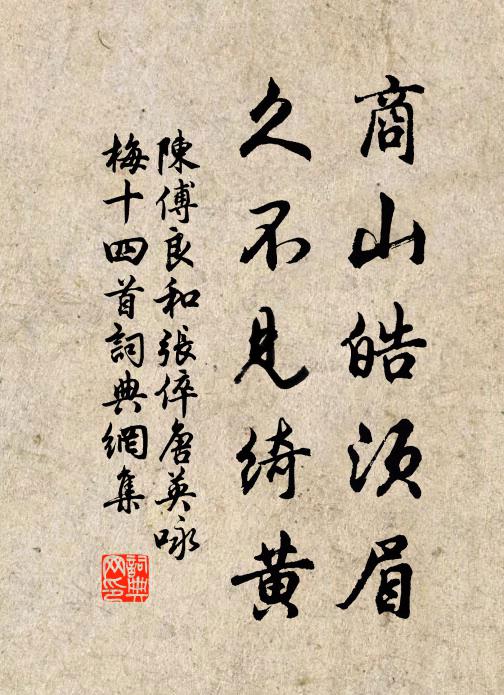 商山皓须眉
久不見绮黄
陳傅良和張倅唐英咏
梅十四首詞典網集
詞典网印